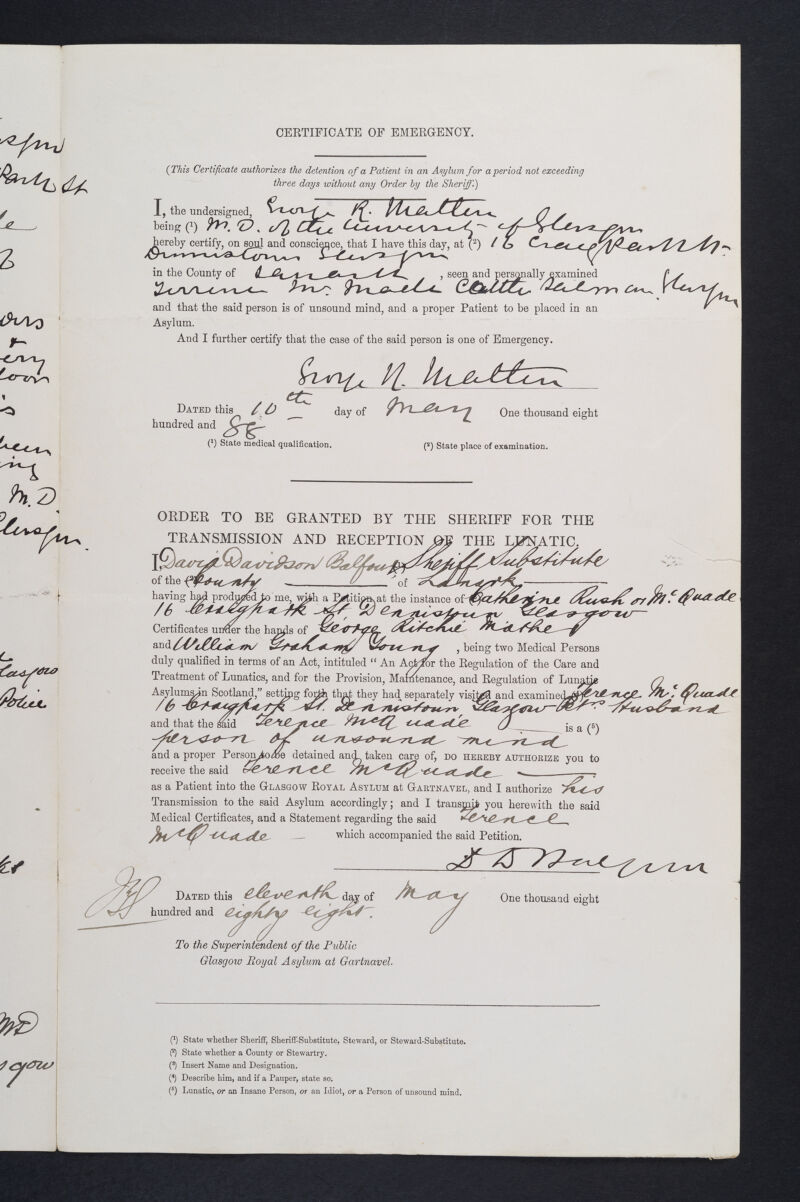 CERTIFICATE OF EMERGENCY.
(This Certificate authorizes the detention of a Patient in an Asylum for a period not exceeding
three days without any Order by the Sheriff.)
I, the undersigned, George R. Mather
being (¹) M.D. of the University of Glasgow
hereby certify, on soul and conscience, that I have this day, at (²) 16 Craig Park St.
Dennistoun Glasgow
in the County of Lanark, seen and personally examined
Terrence Mc Cattle Salesman Glasgow
and that the said person is of unsound mind, and a proper Patient to be placed in an
Asylum.
And I further certify that the case of the said person is one of Emergency.
George R. Mather
DATED this 10th day of May One thousand eight
hundred and 88 —
(¹) State medical qualification. (²) State place of examination.
ORDER TO BE GRANTED BY THE SHERIFF FOR THE
TRANSMISSION AND RECEPTION OF THE LUNATIC.
I, David Davidson Balfour, Sheriff Substitute
of the County of Lanark
having had produced to me, with a Petition at the instance of Catherine Rush or McQuade
16 Craigpark St Dennistoun Glasgow
Certificates under the hands of George Ritchie Mather
and William Graham Young, being two Medical Persons
duly qualified in terms of an Act, intituled “An Act for the Regulation of the Care and
Treatment of Lunatics, and for the Provision, Maintenance, and Regulation of Lunatic
Asylums in Scotland,” setting forth that they had separately visited and examined Terence McQuade
16 Craigpark St. Dennistoun Glasgow Husband
and that the said Terence McQuade is a (⁵)
person of unsound mind
and a proper Person to be detained and taken care of, DO HEREBY AUTHORIZE you to
receive the said Terence McQuade
as a Patient into the GLASGOW ROYAL ASYLUM AT GARTNAVEL, and I authorize his
Transmission to the said Asylum accordingly; and I transmit you herewith the said
Medical Certificates, and a Statement regarding the said Terence
McQuade — which accompanied the said Petition.
D D Balfour
DATED this eleventh day of May One thousand eight
hundred and eighty eight.
To the Superintendent of the Public
Glasgow Royal Asylum at Gartnavel.
(¹) State whether Sheriff, Sheriff-Substitute, Steward, or Steward-Substitute.
(²) State whether a County or Stewartry.
(³) Insert Name and Designation.
(⁴) Describe him, and if a Pauper, state so.
(⁵) Lunatic, or an Insane Person, or an Idiot, or a Person of unsound mind.